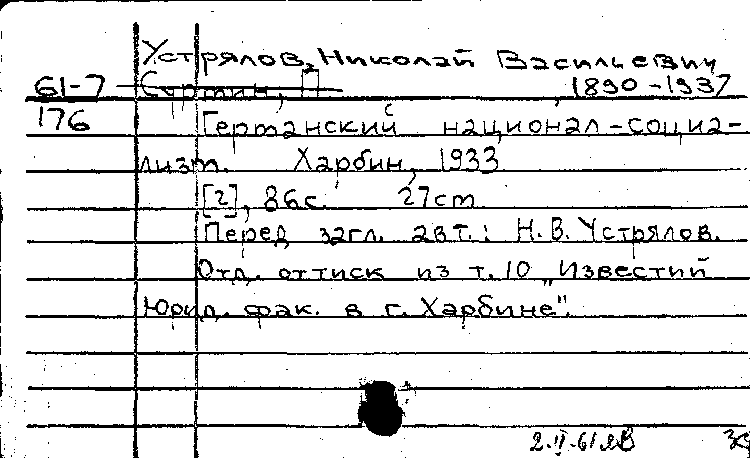 Устрялов, Николай Васильевич
61-7 1890-1937
176 Германский национал-социа-
лизм. Харбин, 1933
[2], 86с. 27cm
Перед загл. авт.: Н.В. Устрялов.
Отд. оттиск из т. 10 „Известий
Юрид. фак. в г. Харбине".
2.II.61